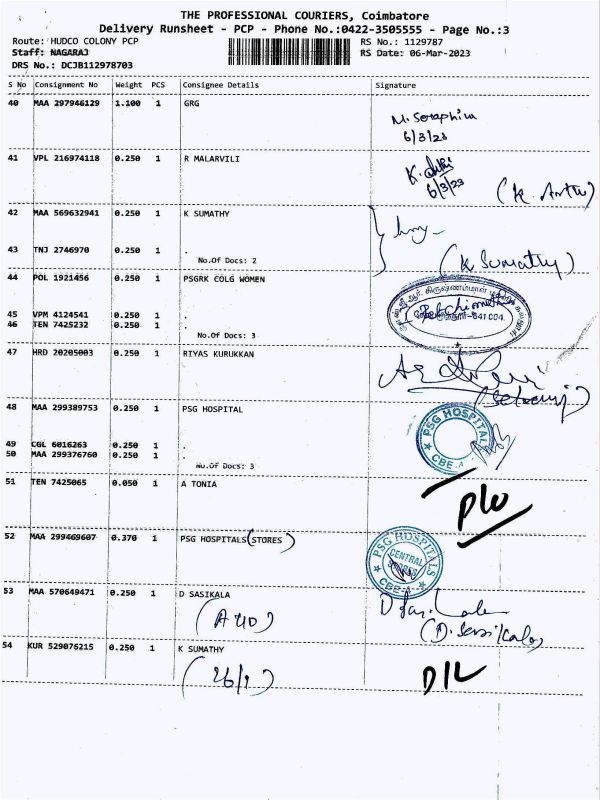 THE PROFESSIONAL COURIERS, Coimbatore
Delivery Runsheet - PCP - Phone No.:0422-3505555 - Page No.:3
Route: HUDCO COLONY PCP RS No.: 1129787
Staff: NAGARAJ RS Date: 06-Mar-2023
DRS No.: DCJB112978703
S No Consignment No Weight PCS Consignee Details Signature
40 MAA 297946129 1.100 1 GRG
M. Seraphina
6/3/23
41 VPL 216974118 0.250 1 R MALARVILI
6/3/23
42 MAA 569632941 0.250 1 K SUMATHY
43 TNJ 2746970 0.250 1 .
No.Of Docs: 2 (K Sumathy)
44 POL 1921456 0.250 1 PSGRK COLG WOMEN
45 VPM 4124541 0.250 1 .
46 TEN 7425232 0.250 1 .
No.Of Docs: 3
47 HRD 20205003 0.250 1 RIYAS KURUKKAN
48 MAA 299389753 0.250 1 PSG HOSPITAL
PSG HOSPITAL
CBE-4
49 CGL 6016263 0.250 1 .
50 MAA 299376760 0.250 1 .
No.Of Docs: 3
51 TEN 7425065 0.050 1 A TONIA
52 MAA 299469607 0.370 1 PSG HOSPITALS(STORES)
PSG HOSPITALS
CENTRAL
STORES
CBE-4
53 MAA 570649471 0.250 1 D SASIKALA
54 KUR 529076215 0.250 1 K SUMATHY
D/L